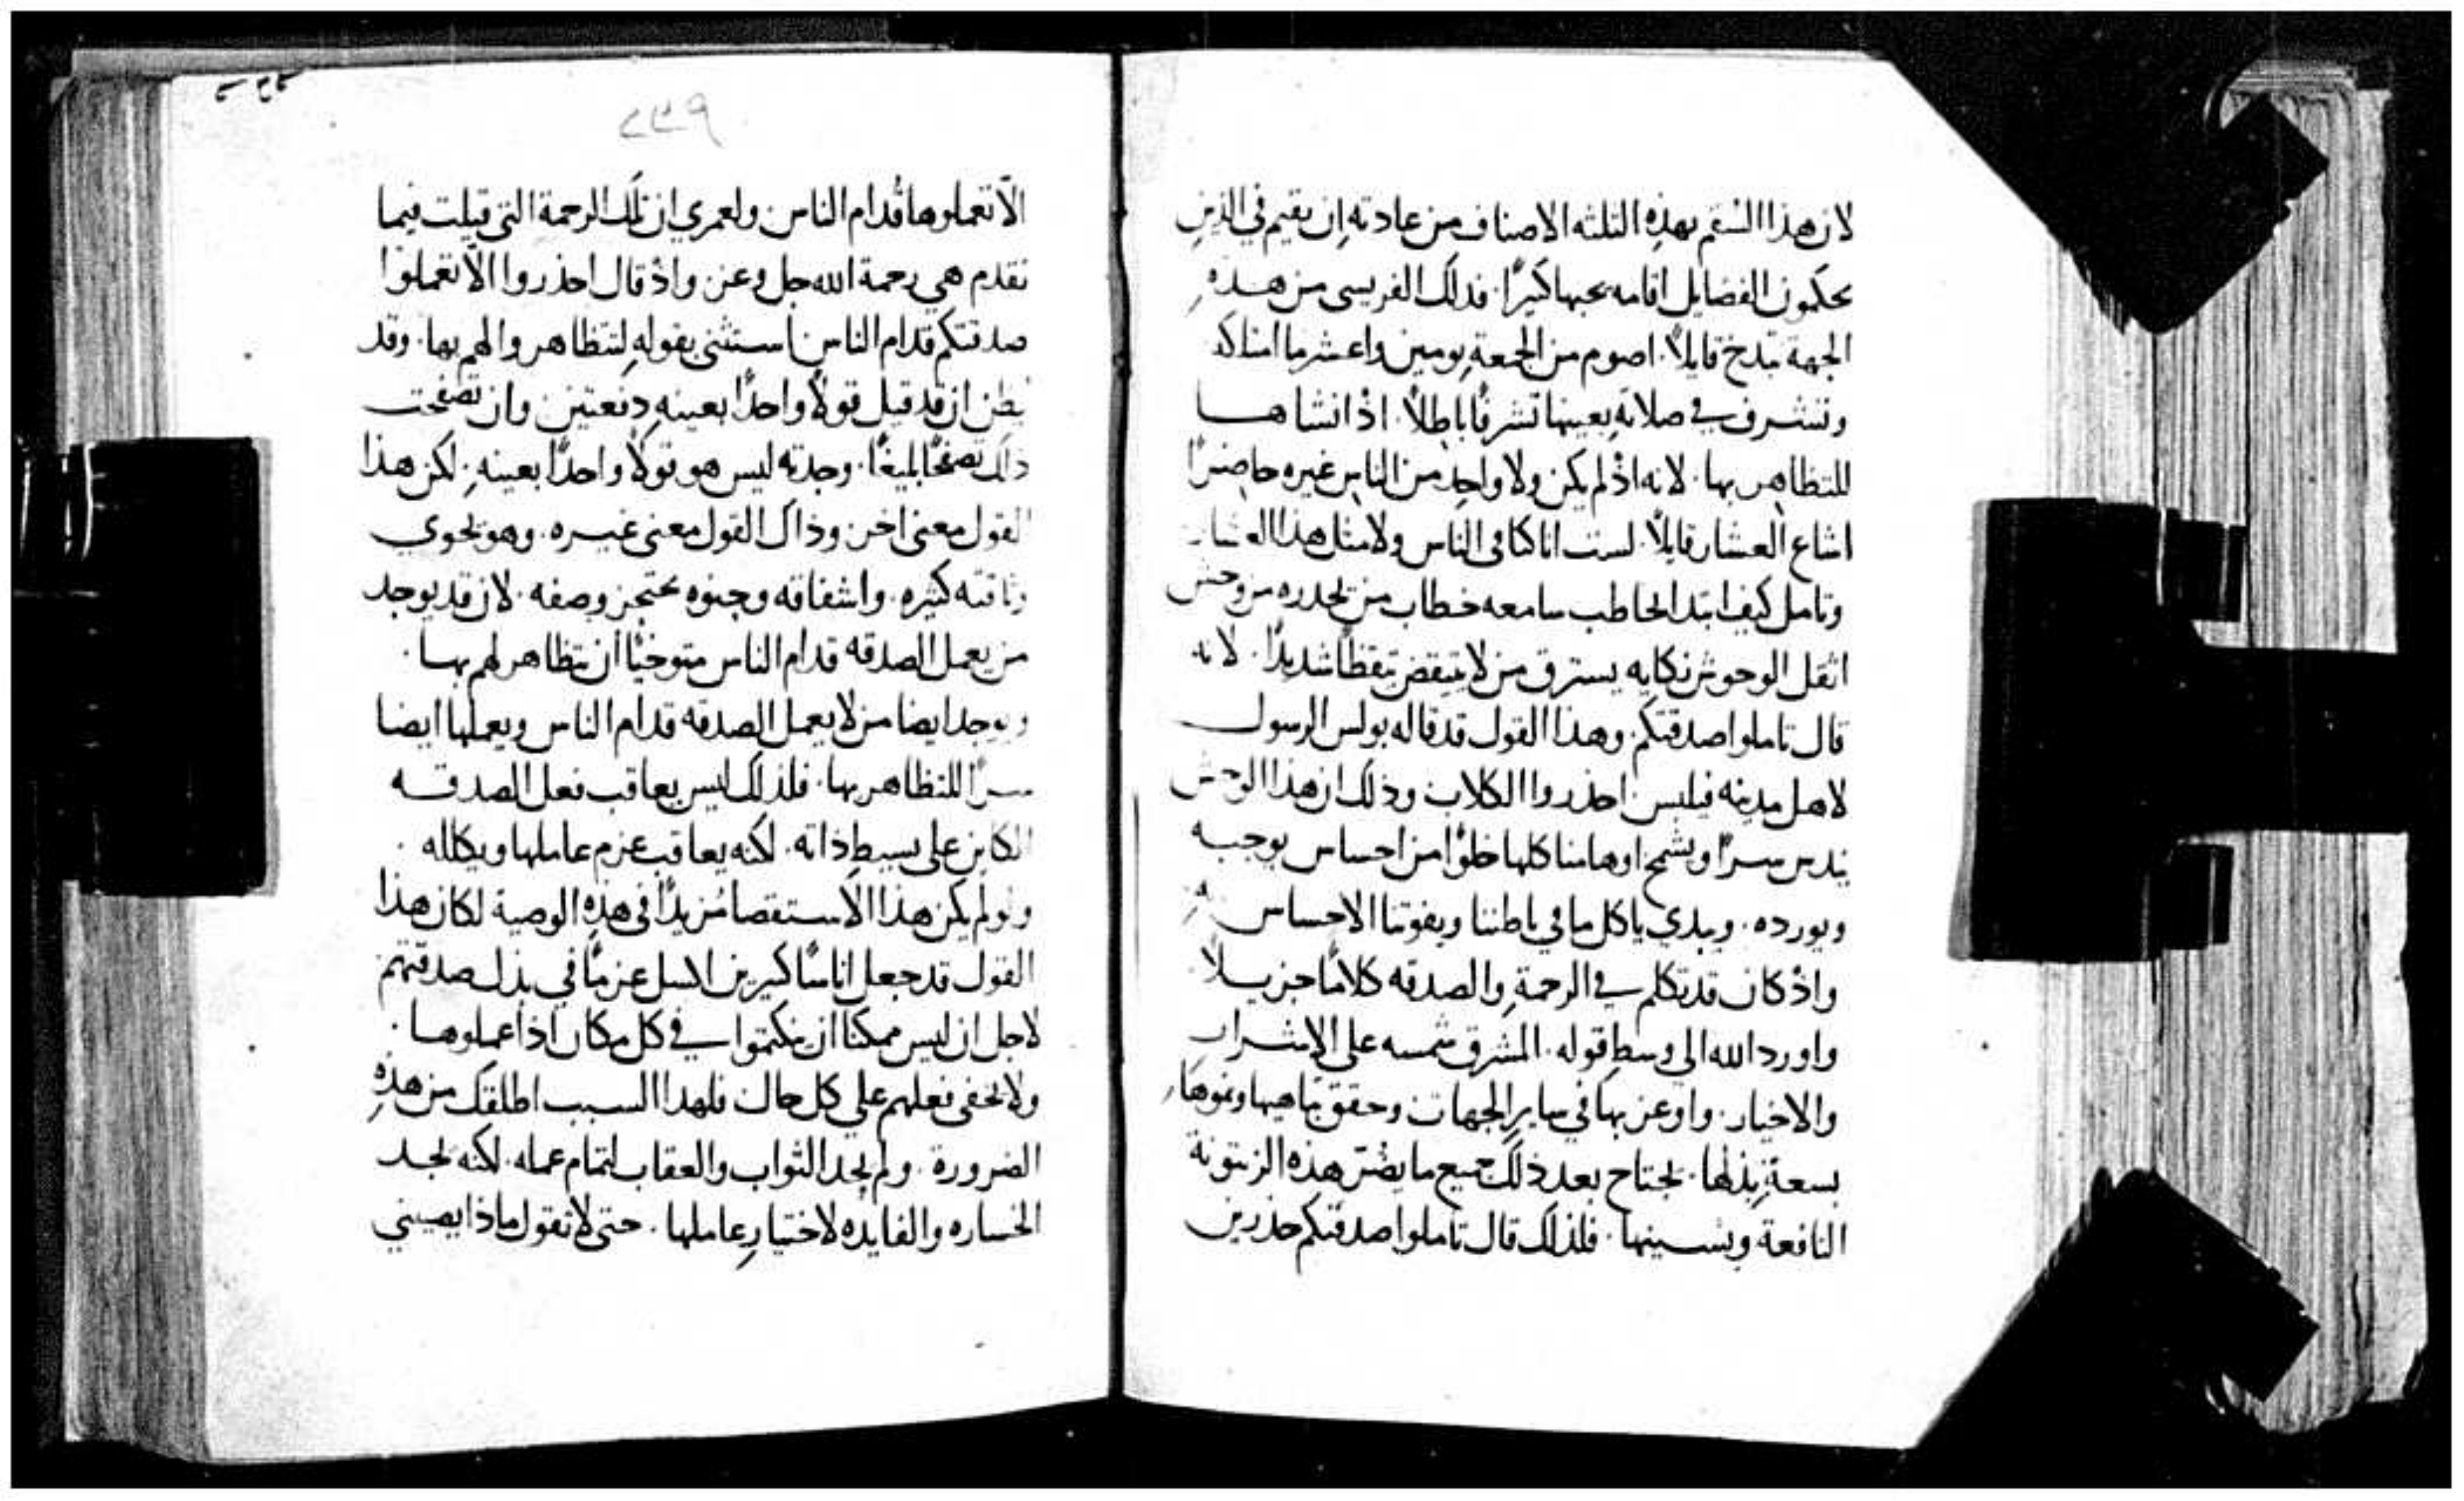 لان هذا السقم بهذه الثلثه الاصناف من عادته ان يقيم في الذين
يحكمون الفضايل اقامه يحبها كثيرًا. فدلك الفريسى من هذه
الجهة تبدخ قايلاً. اصوم من الجمعة يومين واعشر ما امتلكه
وتشرف في صلاته بعينها تشرفًا باطلاً. اذ انشاها
للتظاهر بها. لانه اذ لم يكن ولا واحد من الناس غيره حاضرًا
اشاع العشار قايلاً. لست انا كافى الناس ولا مثل هذا العشار
وتامل كيف ابتدا يخاطب سامعه خطاب من يحدره من وحش
اثقل الوحوش نكايه يسترق من لا يتيقض تيقظًا شديدًا. لانه
قال تاملوا صدقتكم. وهذا القول قد قاله بولس الرسول
لاهل مدينه فيلبس احذروا الكلاب وذلك ان هذا الوحش
يندس سرًا ويشمخ اوهامنا كلها خلوًا من احساس يوجبه
ويورده. ويبدي ياكل ما في باطننا ويفوتنا الاحساس به
واذ كان قد تكلم في الرحمة والصدقه كلامًا جزيلاً
واورد الله الى وسط قوله. المشرق شمسه على الاشرار
والاخيار. واوعز بها في ساير الجهات وحقق تباهيها ونموها
بسعة بذلها. يجتاح بعد ذلك جميع ما يضر هذه الزيتونة
النافعة ويشينها. فلذلك قال تاملوا صدقتكم حذرين
٢٣٩
الّا تعملوها قدام الناس ولعمري ان تلك الرحمة التي قيلت فيما
تقدم هي رحمة الله جل وعز واذ قال احذروا الّا تعملوا
صدقتكم قدام الناس استثنى بقوله لتتظاهروا لهم بها. وقد
يظن ان قد قيل قولاً واحدًا بعينه دفعتين وان تصفحت
ذلك تصفحًا بليغًا. وجدته ليس هو قولاً واحدًا بعينه. لكن هذا
القول معنى اخر وذاك القول معنى غيره. وهو يحوي
وثاقته كثيره. واشفاقه وحنوه يحتجز وصفه. لان قد يوجد
من يعمل الصدقه قدام الناس متوخيًا ان يتظاهر لهم بها.
ويوجد ايضا من لا يعمل الصدقه قدام الناس ويعملها ايضا
سرًا للتظاهر بها. فلذلك ليس يعاقب فعل الصدقه
الكاين على بسيط ذاته. لكنه يعاقب عزم عاملها ويكلله.
ولو لم يكن هذا الاستقصا مزيدًا في هذه الوصية لكان هذا
القول قد جعل اناسًا كثيرين اكسل عزمًا في بذل صدقتهم
لاجل ان ليس ممكنا ان ينكتموا في كل مكان اذا عملوها.
ولا يخفى فعلهم على كل حال فلهذا السبب اطلقك من هذه
الضرورة. ولم يحد الثواب والعقاب لتمام عمله. لكنه يحد
الخساره والفايده لاختيار عاملها. حتى لا تقول ماذا يصيبني